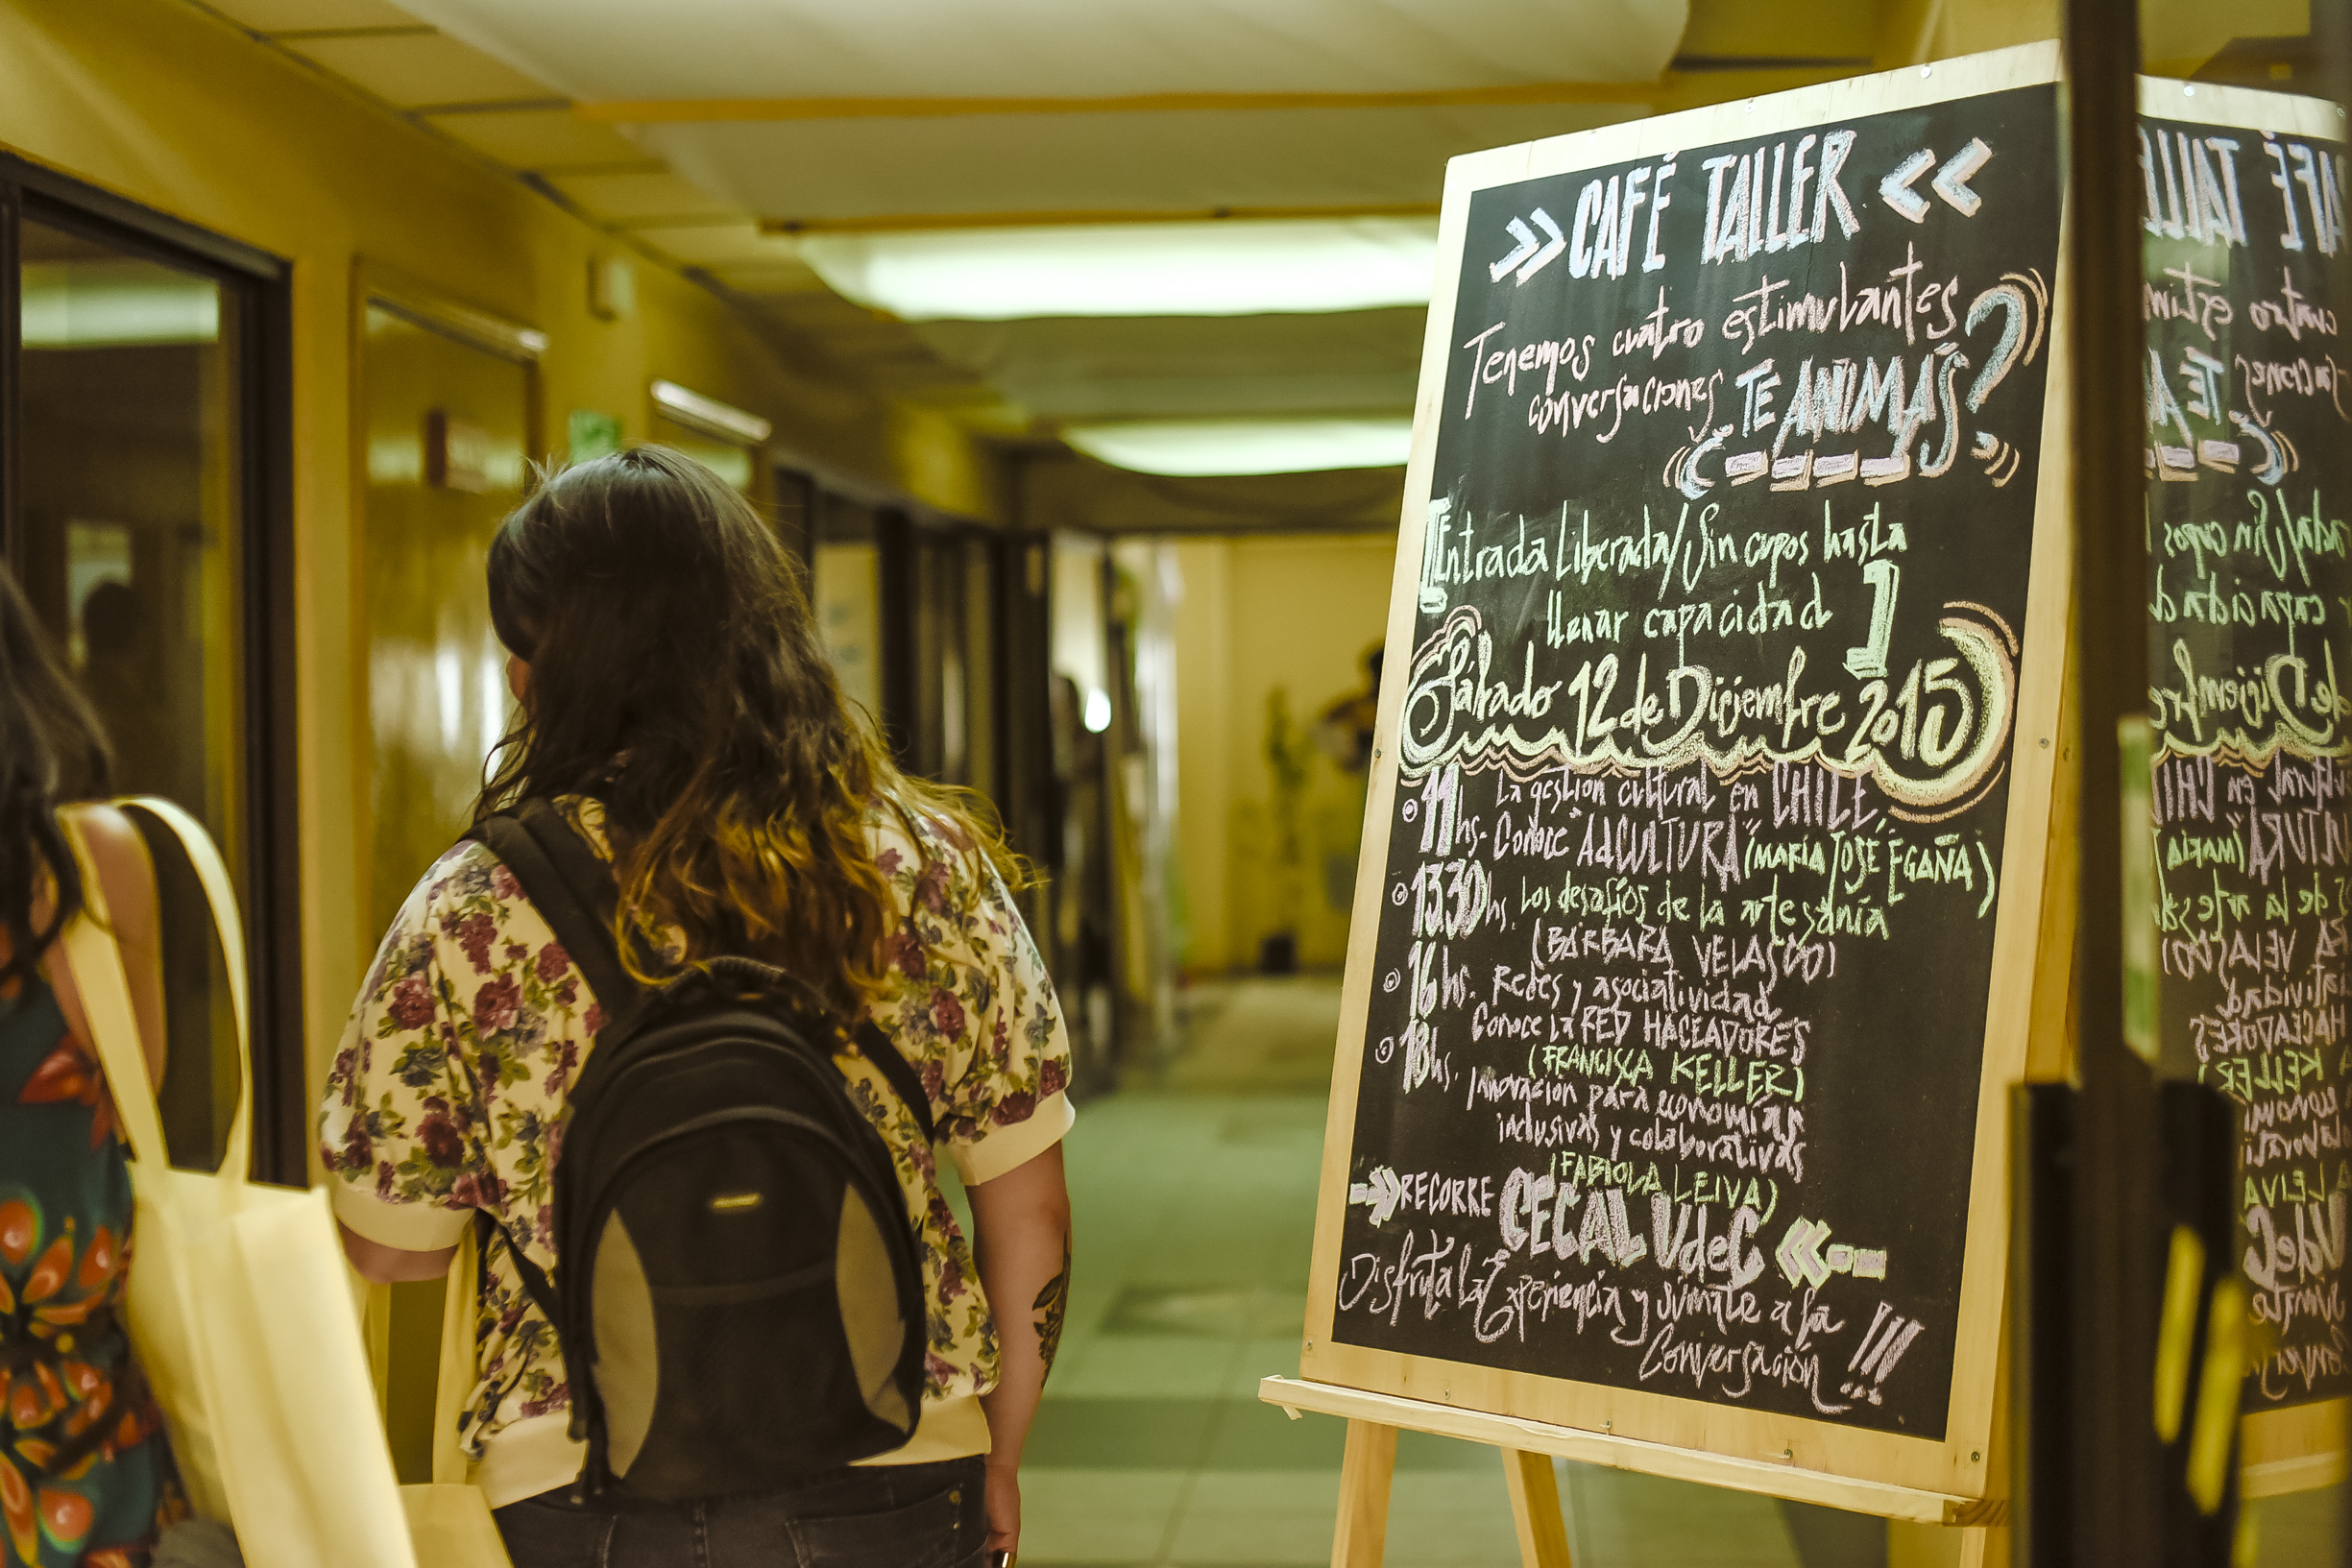 >> CAFÉ TALLER <<
Tenemos cuatro estimulantes
conversaciones TE ANIMAS?
[Entrada Liberada/Sin cupos hasta
llenar capacidad]
Sábado 12 de Diciembre 2015
11hs. La gestión cultural en CHILE,
Conoce "AdCULTURA" (MARÍA JOSÉ EGAÑA)
1330hs. Los desafíos de la artesanía
(BÁRBARA VELASCO)
16hs. Redes y asociatividad
Conoce la RED HACEADORES
(FRANCISCA KELLER)
18hs. Innovación para economías
inclusivas y colaborativas
(FABIOLA LEIVA)
RECORRE CECAL UdeC <<
Disfruta la Experiencia y súmate a la
Conversación !!!